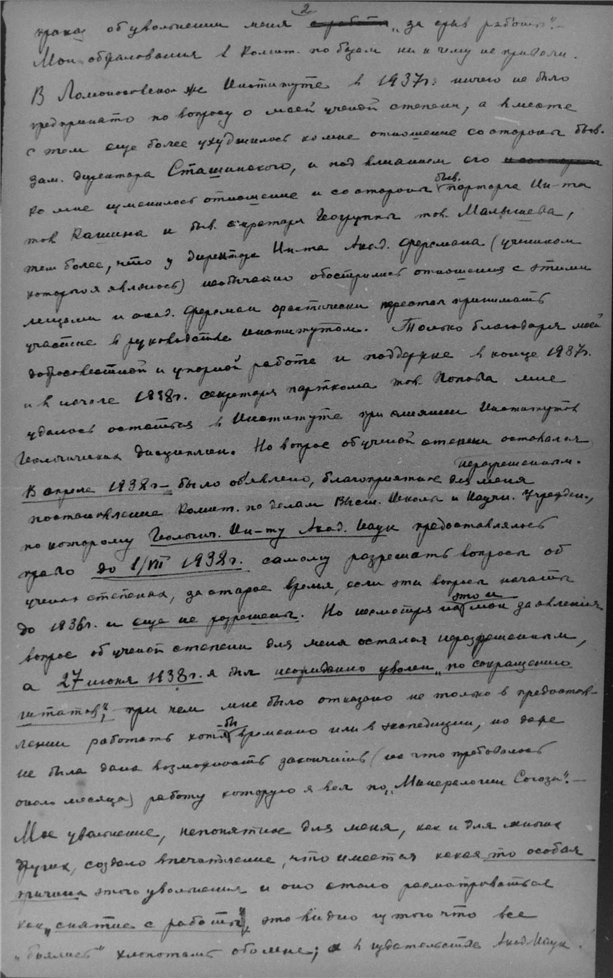 2
приказ об увольнении меня с работы „за срыв работы“.–
Мои обращения в Комит. по ни к чему не привели.
В Ломоносовском же Институте в 1937г. ничего не было
предпринято по вопросу о моей ученой степени, а вместе
с тем еще более ухудшилось ко мне отношение со стороны быв.
зам. директора Сташинского, и под влиянием его
ко мне изменилось отношение и со стороны быв. парторга Ин-та
тов Кашина и быв. секретаря Геогруппы тов. Малышева,
тем более, что у директора Ин-та Акад. Ферсмана (учеником
которого я являюсь) необычайно обострились отношения с этими
лицами и акад. Ферсман фактически перестал принимать
участие в руководстве институтом. Только благодаря моей
добросовестной и упорной работе и поддержке в конце 1937г.
и в начале 1938г. секретаря парткома тов Попова мне
удалось остаться в Институте при слиянии Институтов
Геологических дисциплин. Но вопрос об ученой степени оставался
неразрешенным.
В апреле 1938г– было объявлено, благоприятное для меня
постановление Комит. по делам Высш. Школы и Научн. Учрежден.,
по которому Геологич. Ин-ту Акад. Наук предоставлялось
право до 1/VII 1938г. самому разрешать вопросы об
ученых степенях, за старое время, если эти вопросы начаты
до 1936г. и еще не разрешены. Но несмотря на это и мои заявления
вопрос об ученой степени для меня остался неразрешенным,
а 27 июня 1938г. я был неожиданно уволен „по сокращению
штатов“, при чем мне было отказано не только в предостав-
лении работать хотя бы временно или в экспедиции, но даже
не была дана возможность закончить (на что требовалось
около месяца) работу которую я вел по „Минералогии Союза“.–
Мое увольнение, непонятное для меня, как и для многих
других, создало впечатление, что имеется какая то особая
причина этого увольнения и оно стало рассматриваться
как „снятие с работы“, это видно из того что все
„боялись“ хлопотать обо мне; а в издательстве Акад. Наук.